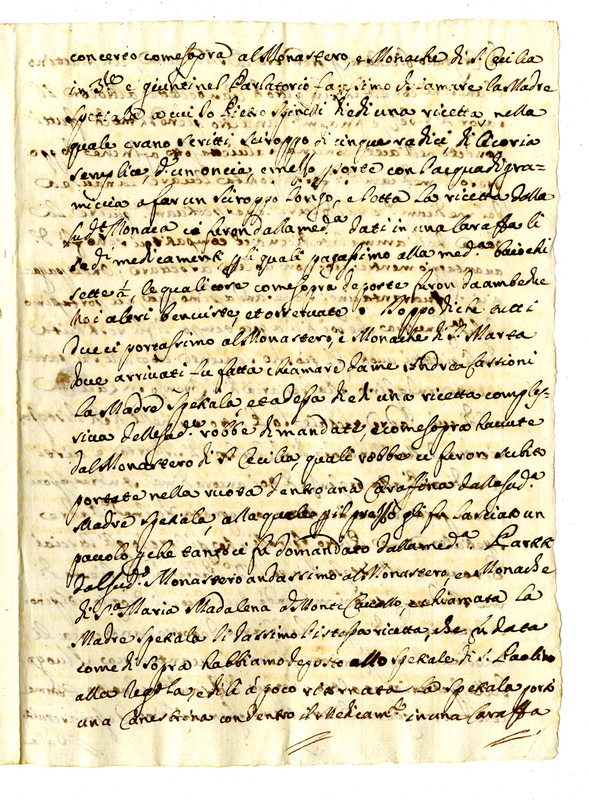 concerto come sopra al Monastero, e Monache di S. Cecilia
in e giunti nel Parlatorio facessimo chiamare la Madre
Spetiala a cui Io Pietro Spinelli diedi una ricetta, nella
quale erano scritti, sciroppo di cinque radici, di Cicoria
semplice, d'un oncia, e mezzo p[er] sorte con l'acqua di gra=
miccia a far un sciroppo longo, e letta la ricetta dalla
sud.ta Monaca ci furon dalla med.a dati in una Caraffa li
sud.i medicamenti p[er] li quali pagassimo alla med.a baiochi
sette ½, le quali cose come sopra deposte furon da ambedue
Noi altri benviste, et osservate. Doppo di che tutti
due ci portassimo al Monastero, e Monache di S. Marta
dove arrivati fu fatta chiamare da me Andrea Cassioni
la Madre Spetiala, et ad essa diedi una ricetta comples=
siva delle sud.e robbe dimandate, e come sopra havute
dal Monastero di S. Cecilia, quali robbe ci furon subito
portate nella ruota dentro una Caraffina dalla sud.a
Madre Spetiala, alla quale p[er] il prezzo gli fu lasciato un
paolo p[er] che tanto ci fu domandato dalla med.a Partiti
dal sud.o Monastero andassimo al Monastero, e Monache
di S.a Maria Madalena a Monte Cavallo, e chiamata la
Madre Spetiala li dassimo l'istessa ricetta, che fu data
come di sopra habbiamo deposto allo Spetiale di S. Paolino
alla Regola, e di lì a poco ritornata la Spetiala portò
una Canestrina con dentro il Medicam.to in una Caraffa